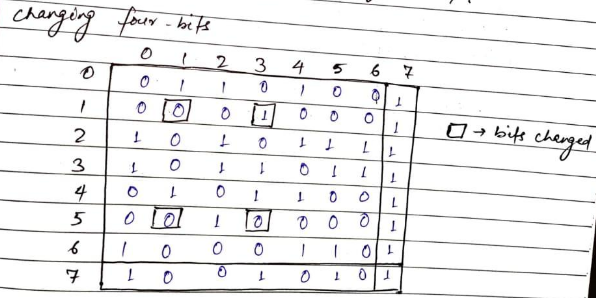 changing four-bits
0 1 2 3 4 5 6 7
0 0 1 1 0 1 0 0 1
1 0 0 0 1 0 0 0 1
2 1 0 1 0 1 1 1 1
3 1 0 1 1 0 1 1 1
4 0 1 0 1 1 0 0 1
5 0 0 1 0 0 0 0 1
6 1 0 0 0 1 1 0 1
7 1 0 0 1 0 1 0 1
□ → bits changed